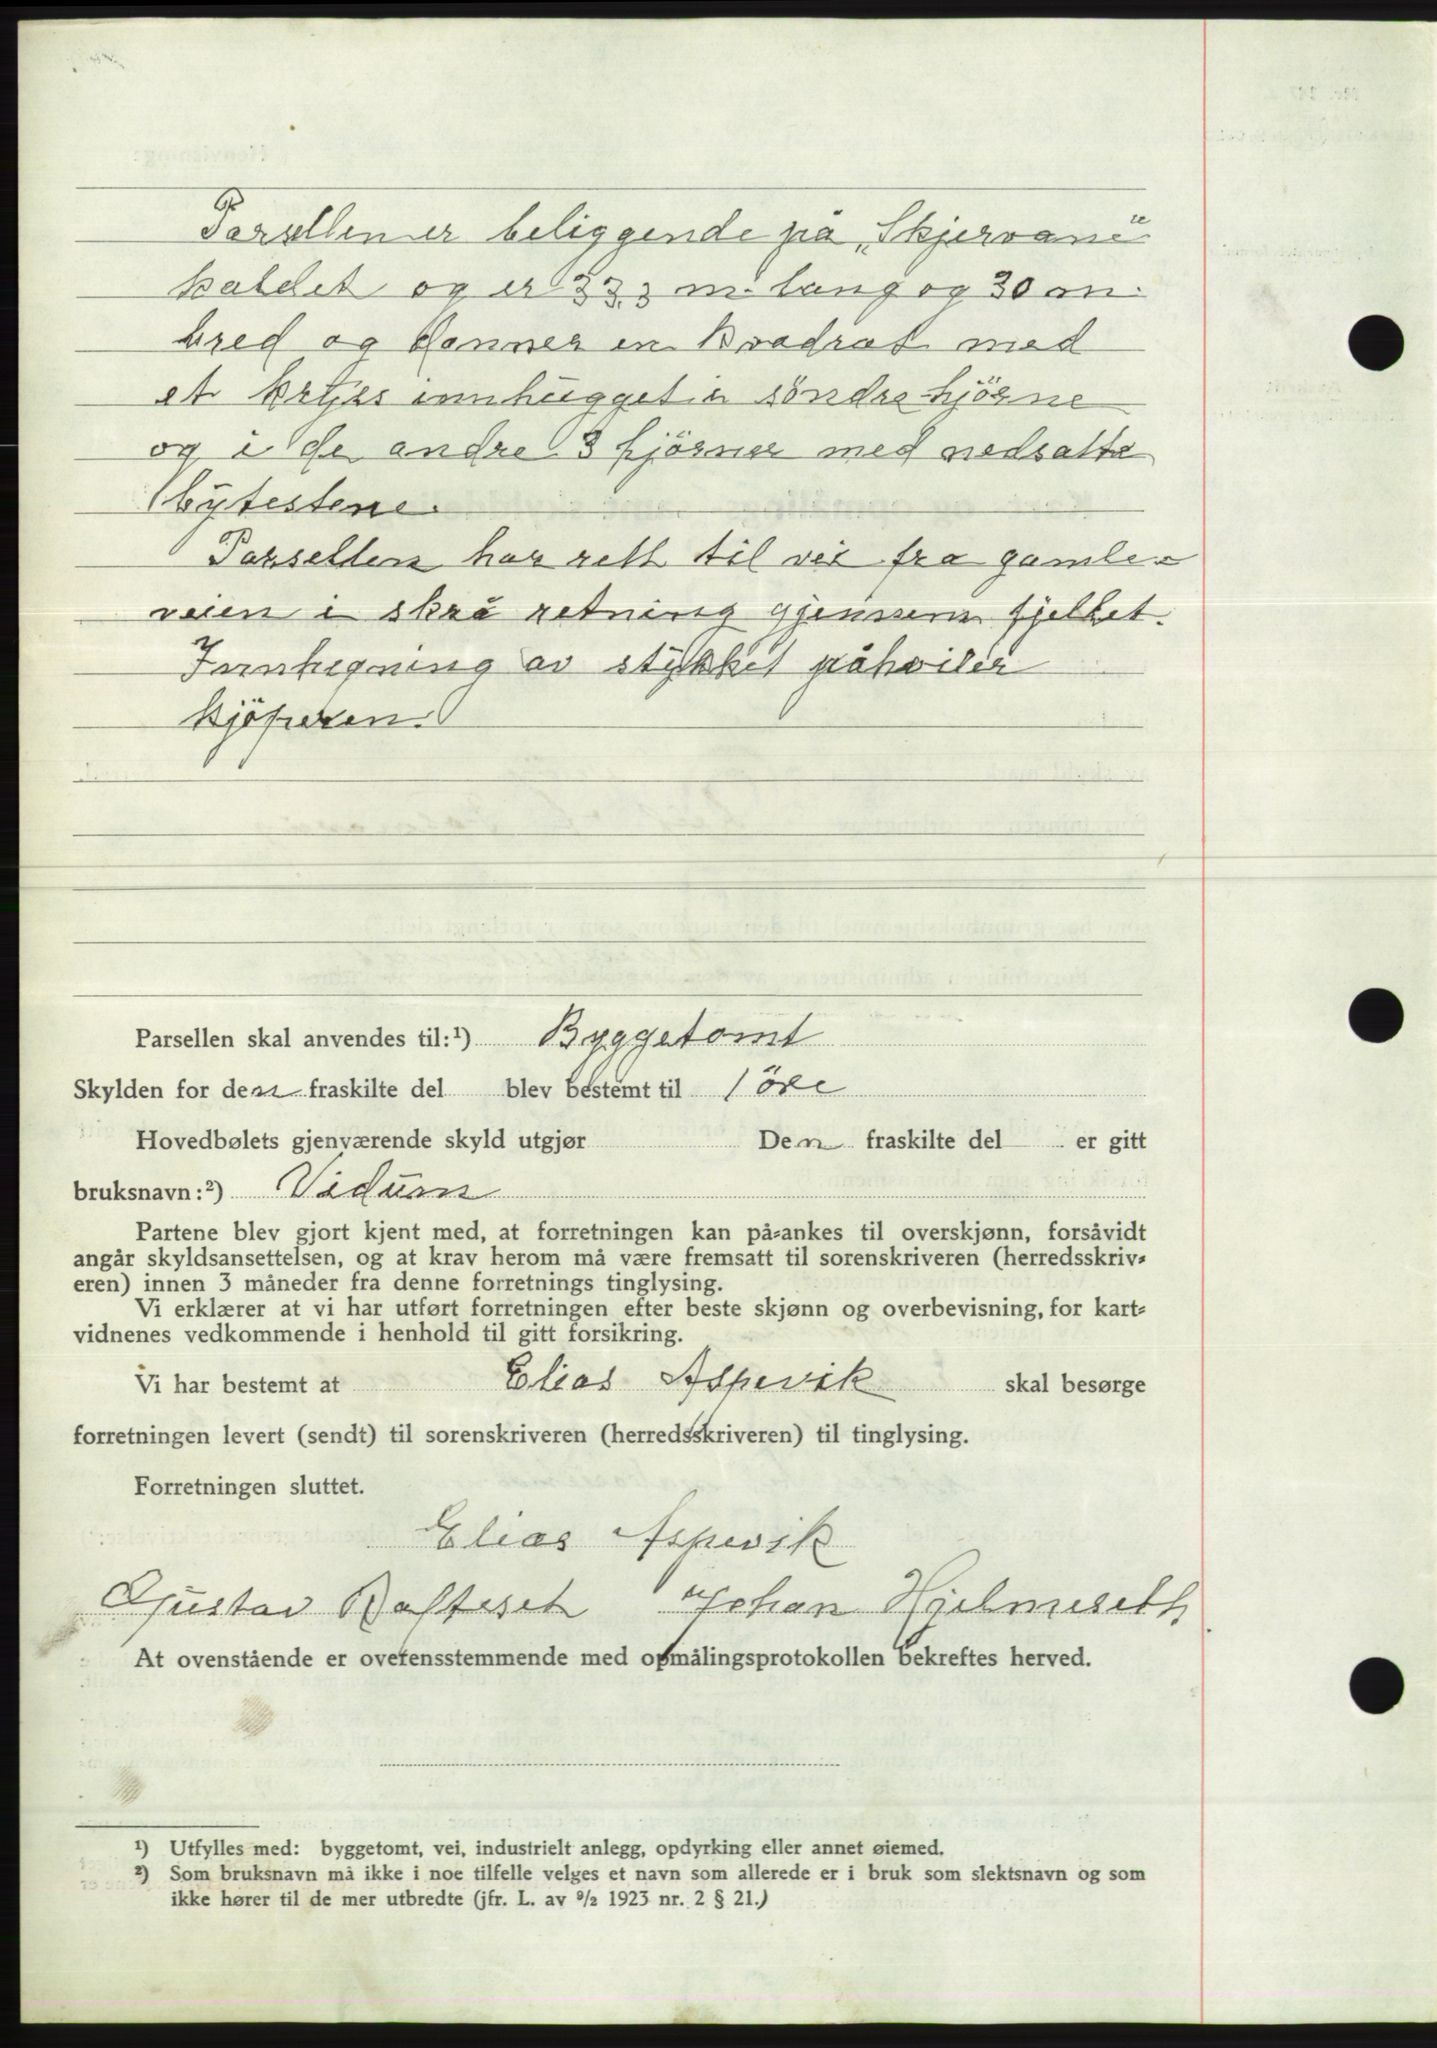 Parsellen er beliggende på „Skjervane"
kaldet og er 33,3 m. lang og 30 m.
bred og danner en kvadrat med
et kryss innhugget i söndre hjörne
og i de andre 3 hjörner med nedsatte
bytestene.
Parsellen har rett til vei fra gamle-
veien i skrå retning gjennem fjellet.
Innhegning av stykket påhviler
kjöperen.
Parsellen skal anvendes til:¹) Byggetomt
Skylden for den fraskilte del blev bestemt til 1 öre
Hovedbølets gjenværende skyld utgjør Den fraskilte del er gitt
bruksnavn:²) Vidum
Partene blev gjort kjent med, at forretningen kan på-ankes til overskjønn, forsåvidt
angår skyldsansettelsen, og at krav herom må være fremsatt til sorenskriveren (herredsskriv-
eren) innen 3 måneder fra denne forretnings tinglysing.
Vi erklærer at vi har utført forretningen efter beste skjønn og overbevisning, for kart-
vidnenes vedkommende i henhold til gitt forsikring.
Vi har bestemt at Elias Aspevik skal besørge
forretningen levert (sendt) til sorenskriveren (herredsskriveren) til tinglysing.
Forretningen sluttet.
Elias Aspevik
Gustav Rafteset Johan Hjelmeseth
At ovenstående er overensstemmende med opmålingsprotokollen bekreftes herved.
¹) Utfylles med: byggetomt, vei, industrielt anlegg, opdyrking eller annet øiemed.
²) Som bruksnavn må ikke i noe tilfelle velges et navn som allerede er i bruk som slektsnavn og som
ikke hører til de mer utbredte (jfr. L. av ⁹/₂ 1923 nr. 2 § 21.)